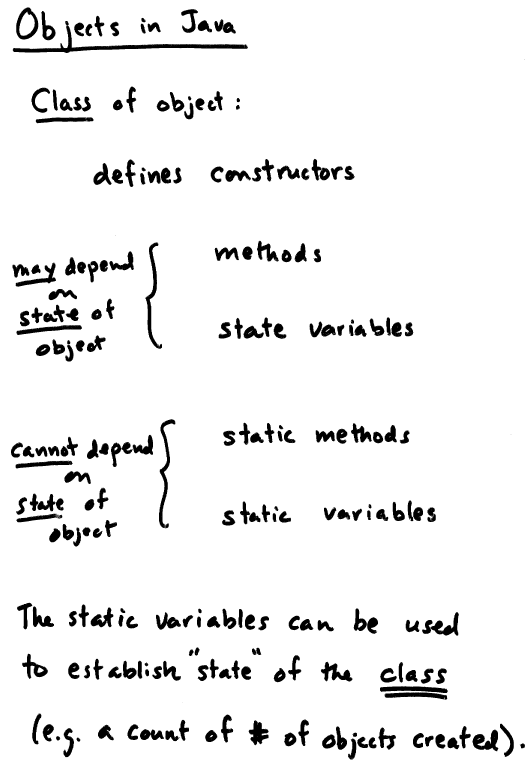 Objects in Java
Class of object:
defines constructors
may depend
on
state of
object
methods
state variables
cannot depend
on
state of
object
static methods
static variables
The static variables can be used
to establish "state" of the class
(e.g. a count of # of objects created).